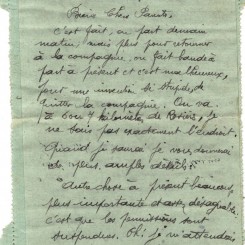 Biens Chers Parents,
C'est fait, on part demain
matin, mais plus pour retourner
à la compagnie, on fait bande à
part à présent et c'est malheureux,
pour une invention si stupide, de
quitter la compagnie. On va
à 6 ou 7 kilomètres de
ne sais pas exactement l'endroit.
Quand je saurai je vous donnerai
de plus amples détails.
Autre chose à présent beaucoup
plus importante et désagréable
c'est que les permissions sont
suspendues. Oh! je m'attendais